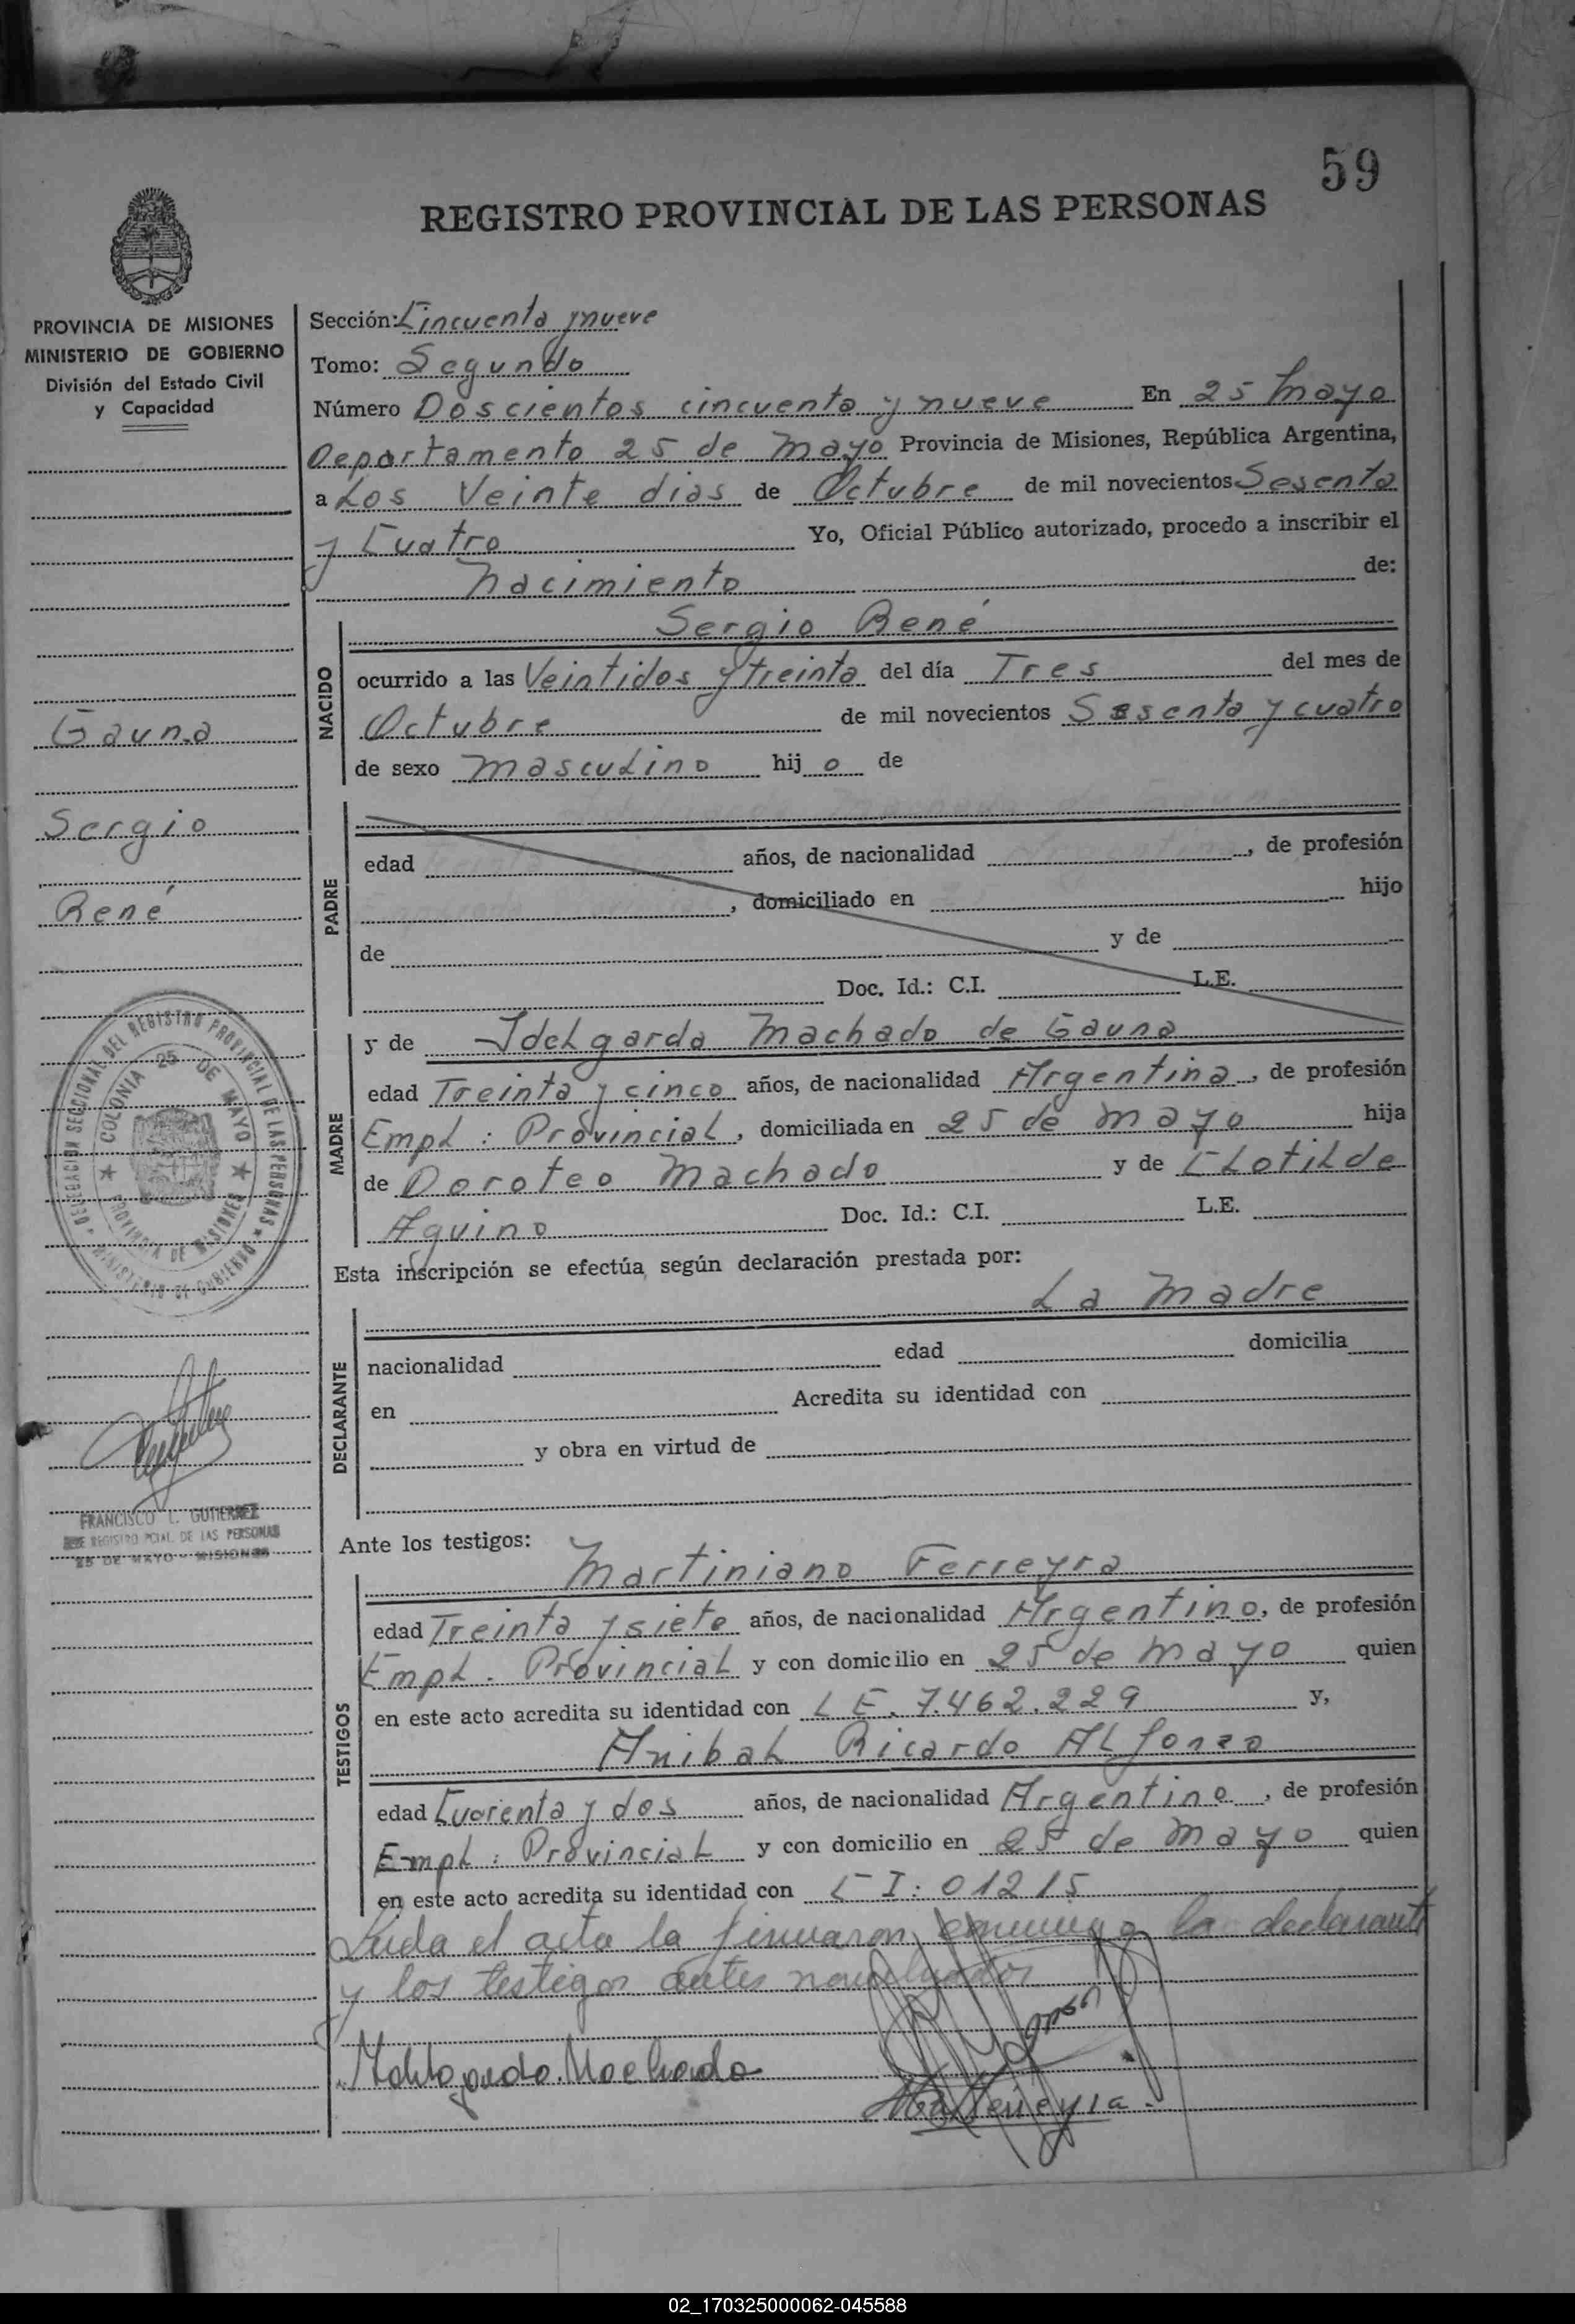 59
REGISTRO PROVINCIAL DE LAS PERSONAS
PROVINCIA DE MISIONES
MINISTERIO DE GOBIERNO
División del Estado Civil
y Capacidad
Gauna
Sergio
René
DELEGACION SECCIONAL DEL REGISTRO PROVINCIAL DE LAS PERSONAS
MINISTERIO DE GOBIERNO
COLONIA 25 DE MAYO
PROVINCIA DE MISIONES
FRANCISCO L. GUTIERREZ
JEFE REGISTRO PCIAL. DE LAS PERSONAS
25 DE MAYO - MISIONES
Sección: Cincuenta y nueve
Tomo: Segundo
Número Doscientos cincuenta y nueve En 25 Mayo
Departamento 25 de Mayo Provincia de Misiones, República Argentina,
a Los Veinte dias de Octubre de mil novecientos Sesenta
y Cuatro Yo, Oficial Público autorizado, procedo a inscribir el
Nacimiento de:
NACIDO
Sergio René
ocurrido a las Veintidos y treinta del día Tres del mes de
Octubre de mil novecientos Sesenta y cuatro
de sexo Masculino hij o de
PADRE
edad años, de nacionalidad , de profesión
, domiciliado en hijo
de y de
Doc. Id.: C.I. L.E.
MADRE
y de Idelgarda Machado de Gauna
edad Treinta y cinco años, de nacionalidad Argentina, de profesión
Empl: Provincial, domiciliada en 25 de Mayo hija
de Doroteo Machado y de Clotilde
Aquino Doc. Id.: C.I. L.E.
Esta inscripción se efectúa según declaración prestada por:
La Madre
DECLARANTE
nacionalidad edad domicilia
en Acredita su identidad con
y obra en virtud de
Ante los testigos:
TESTIGOS
Martiniano Ferreyra
edad Treinta y siete años, de nacionalidad Argentino, de profesión
Empl. Provincial y con domicilio en 25 de Mayo quien
en este acto acredita su identidad con L E. 7.462.229 y,
Anibal Ricardo Alfonzo
edad Cuarenta y dos años, de nacionalidad Argentino, de profesión
Empl: Provincial y con domicilio en 25 de Mayo quien
en este acto acredita su identidad con C I: 01215
Leida el acta la firmaron conmigo la declarante
y los testigos antes nombrados
Machado
Ferreyra
02_170325000062-045588